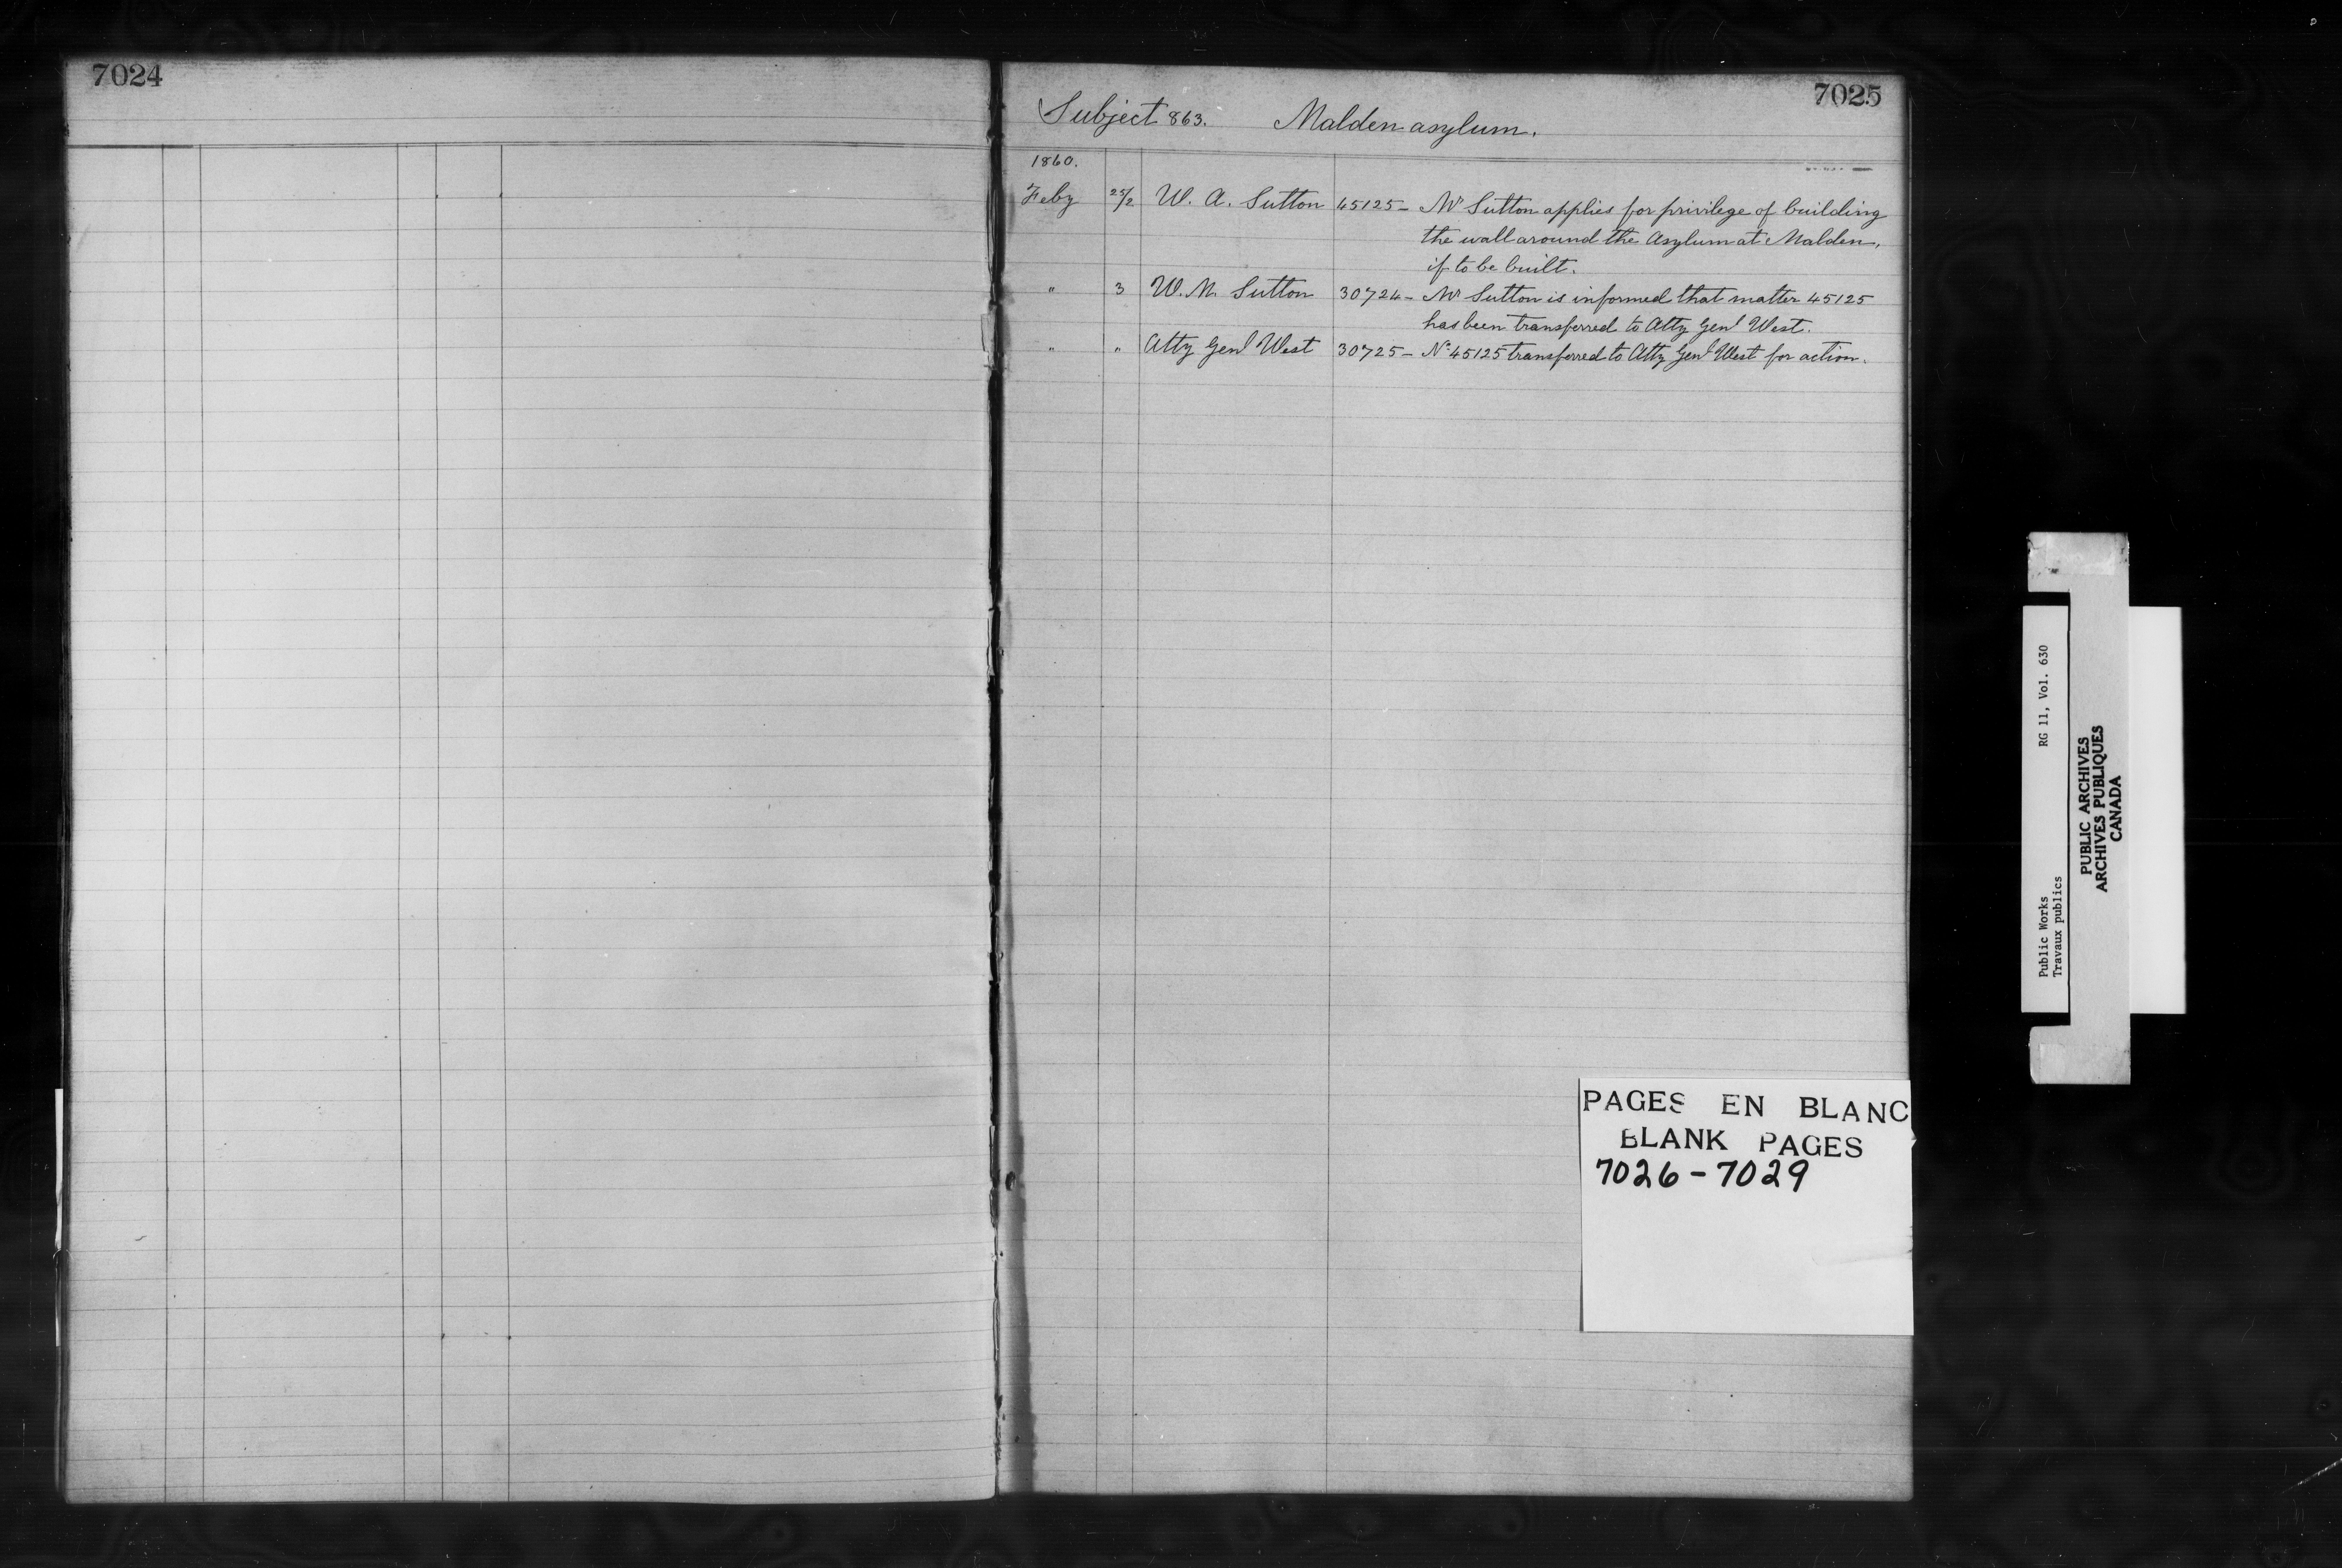 7024
7025
Subject 863. Malden asylum.
1860.
Feby 25/2 W. A. Sutton 45125 - Mr Sutton applies for privilege of building
the wall around the Asylum at Malden,
if to be built.
" 3 W. M. Sutton 30724 - Mr Sutton is informed that matter 45125
has been transferred to Atty Genl West.
" " Atty Genl West 30725 - No 45125 transferred to Atty Genl West for action.
PAGES EN BLANC
BLANK PAGES
7026-7029
Public Works RG 11, Vol. 630
Travaux publics
PUBLIC ARCHIVES
ARCHIVES PUBLIQUES
CANADA